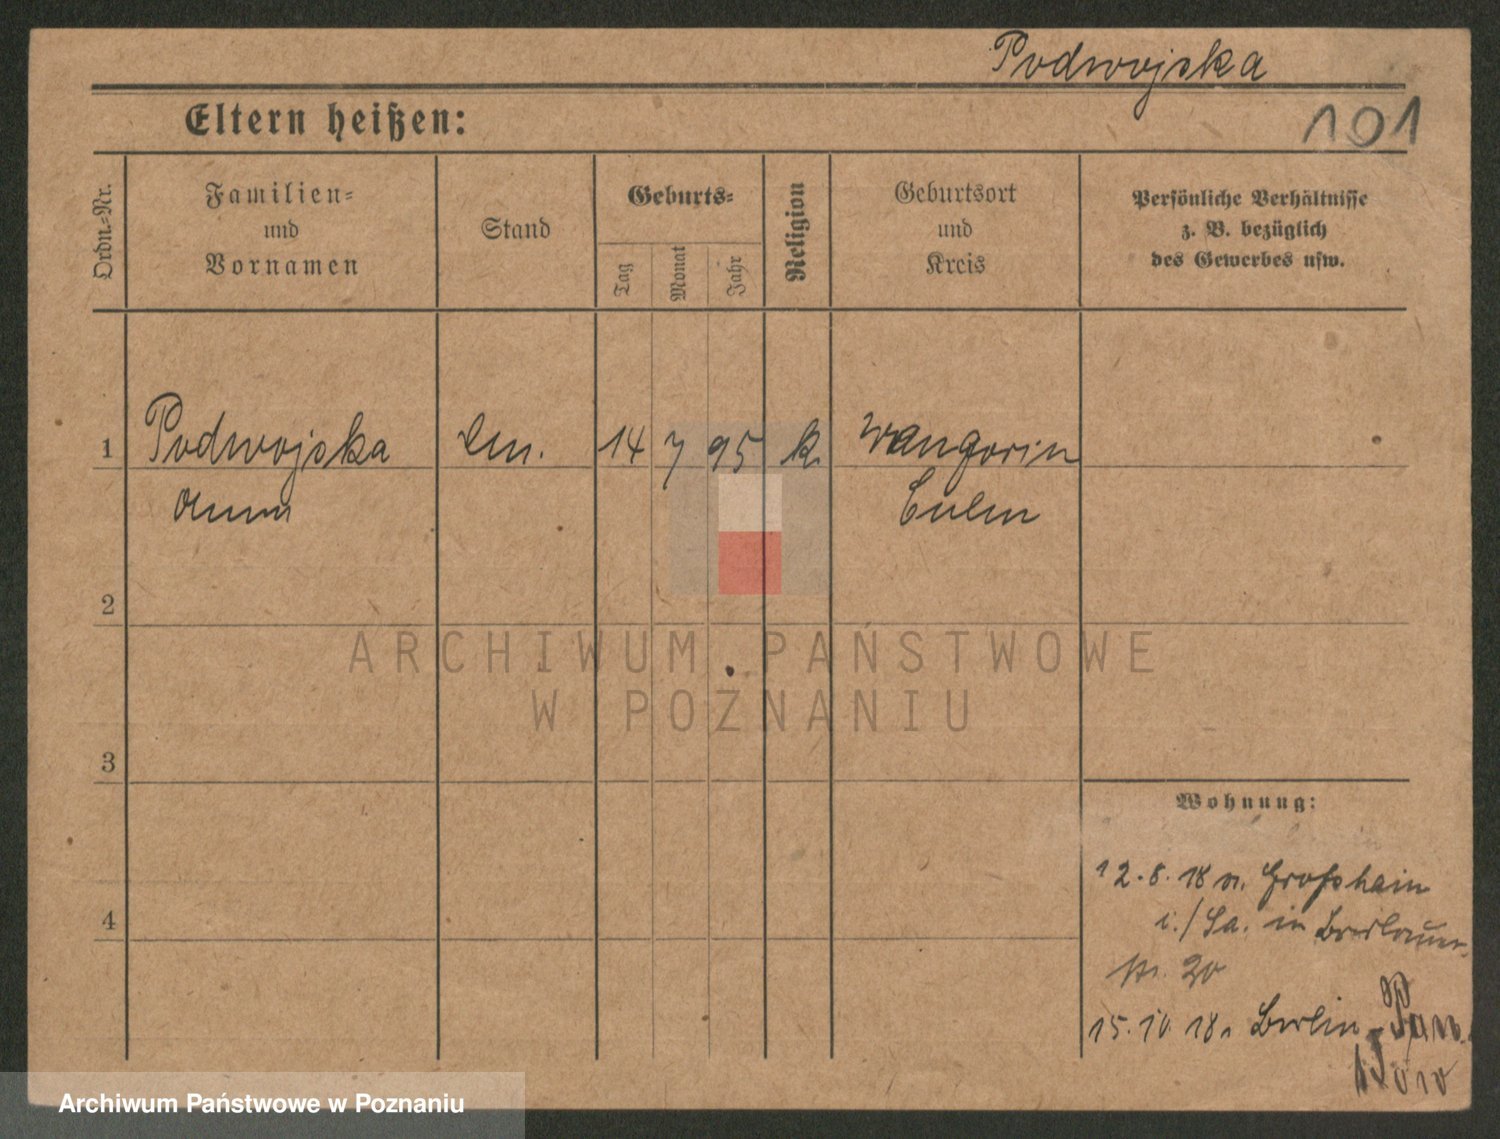 Podwojska
101
Eltern heißen:
Ordn.-Nr.
Familien-
und
Vornamen
Stand
Geburts-
Tag
Monat
Jahr
Religion
Geburtsort
und
Kreis
Persönliche Verhältnisse
z. B. bezüglich
des Gewerbes usw.
1 Podwojska 14 7 95 k. Wangorin
Culm
2
ARCHIWUM PAŃSTWOWE
W POZNANIU
3
Wohnung:
12.8.18 n. Großhain
i./Sa. in
str. 20
4
15.10.18. Berlin-Pan
kow
Archiwum Państwowe w Poznaniu